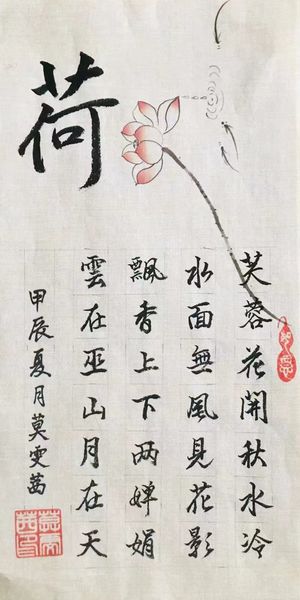 荷
芙蓉花開秋水冷
水面無風見花影
飄香上下两婵娟
雲在巫山月在天
甲辰夏月莫雯茜